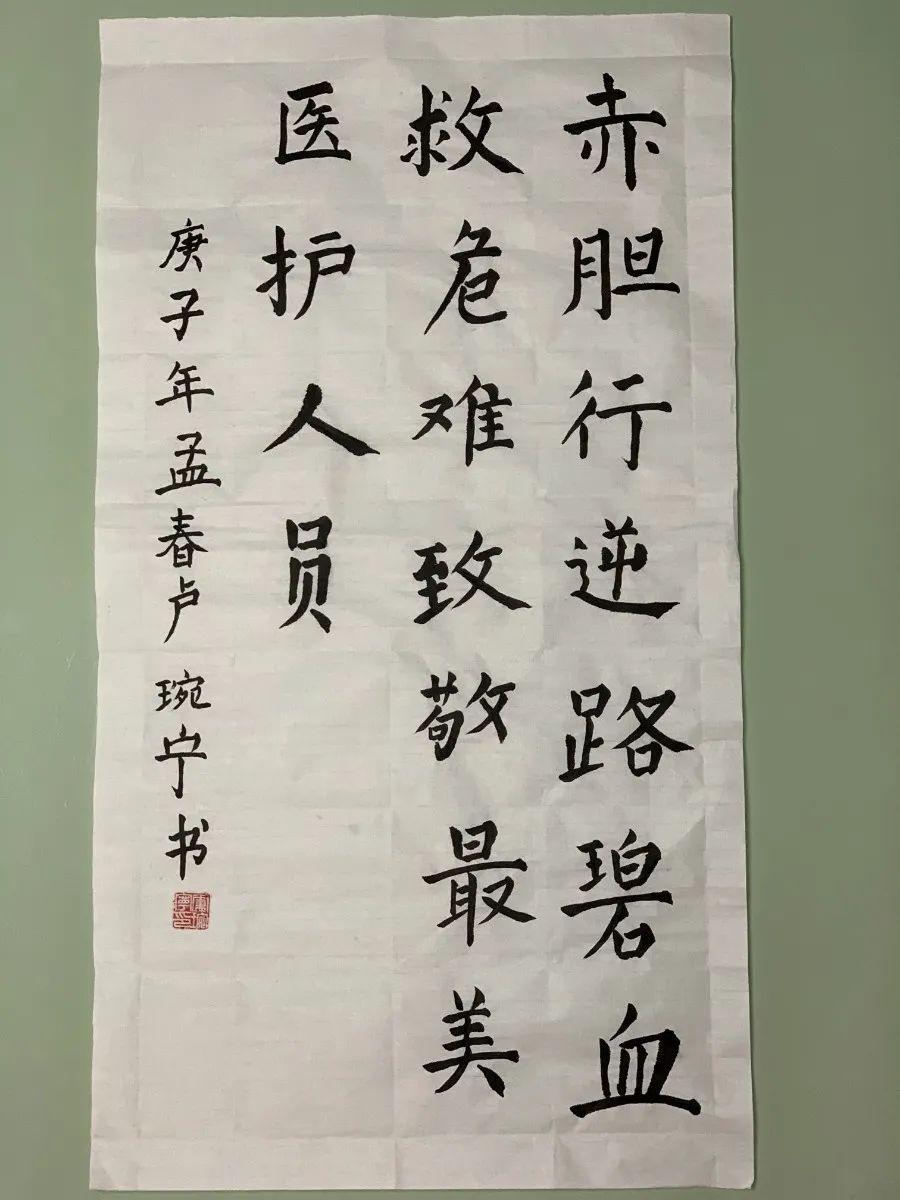 赤胆行逆路碧血
救危难致敬最美
医护人员
庚子年孟春卢琬宁书